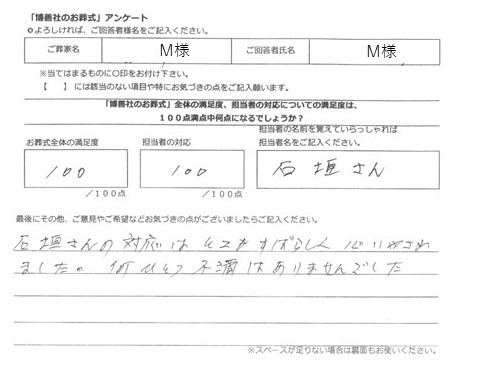 「博善社のお葬式」アンケート
○よろしければ、ご回答者様名をご記入ください。
ご葬家名 M様 ご回答者氏名 M様
※当てはまるものに○印をお付け下さい。
【 】には該当のない項目や特にお気づきの点をご記入願います。
「博善社のお葬式」全体の満足度、担当者の対応についての満足度は、
100点満点中何点になるでしょうか?
お葬式全体の満足度 担当者の対応 担当者の名前を覚えていらっしゃれば
担当者名をご記入ください。
100 100 石垣さん
/100点 /100点
最後にその他、ご意見やご希望などお気づきの点がございましたらご記入ください。
石垣さんの対応はとてもすばらしく心いやされ
ました。何ひとつ不満はありませんでした
※スペースが足りない場合は裏面もお使いください。